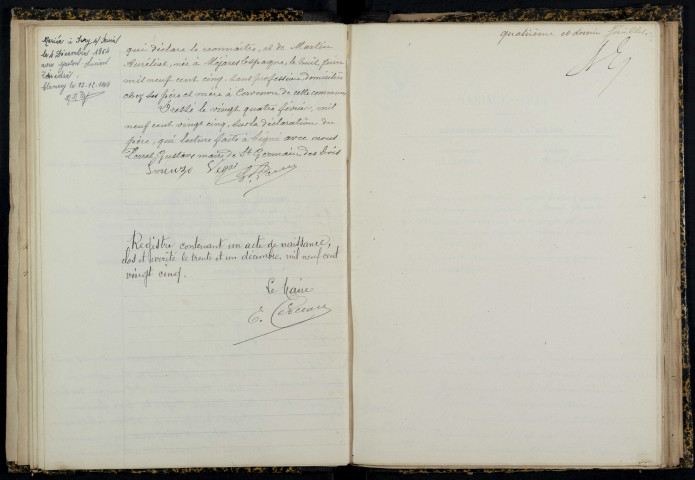 Mariée à Ivry s/ Seine
le 4 Décembre 1954
avec Gaston
le 13.12.1954
qui déclare le reconnaître, et de Martin
Aurélia, née à Mejares Espagne, le huit Juin
mil neuf cent cinq, sans profession, domiciliée
chez ses père et mère à Corvenne de cette commune
Dressé le vingt quatre février, mil
neuf cent vingt cinq, sur la déclaration du
père, qui lecture faite a signé avec nous
Gustave maire de St Germain des Bois
Lorenzo Vegas
Registre contenant un acte de naissance,
clos et arrêté le trente et un décembre, mil neuf cent
vingt cinq.
Le Maire
quatrième et dernier feuillet.